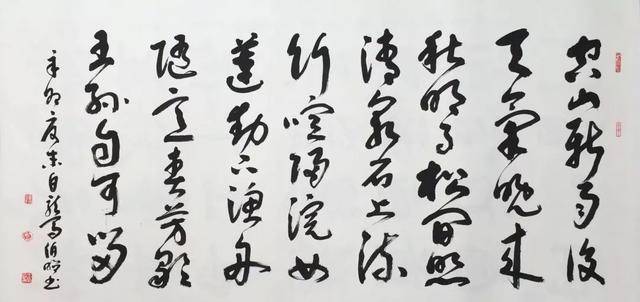 空山新雨後
天氣晚來
秋明月松間照
清泉石上流
竹喧歸浣女
蓮動下漁舟
隨意春芳歇
王孫自可留
辛卯書